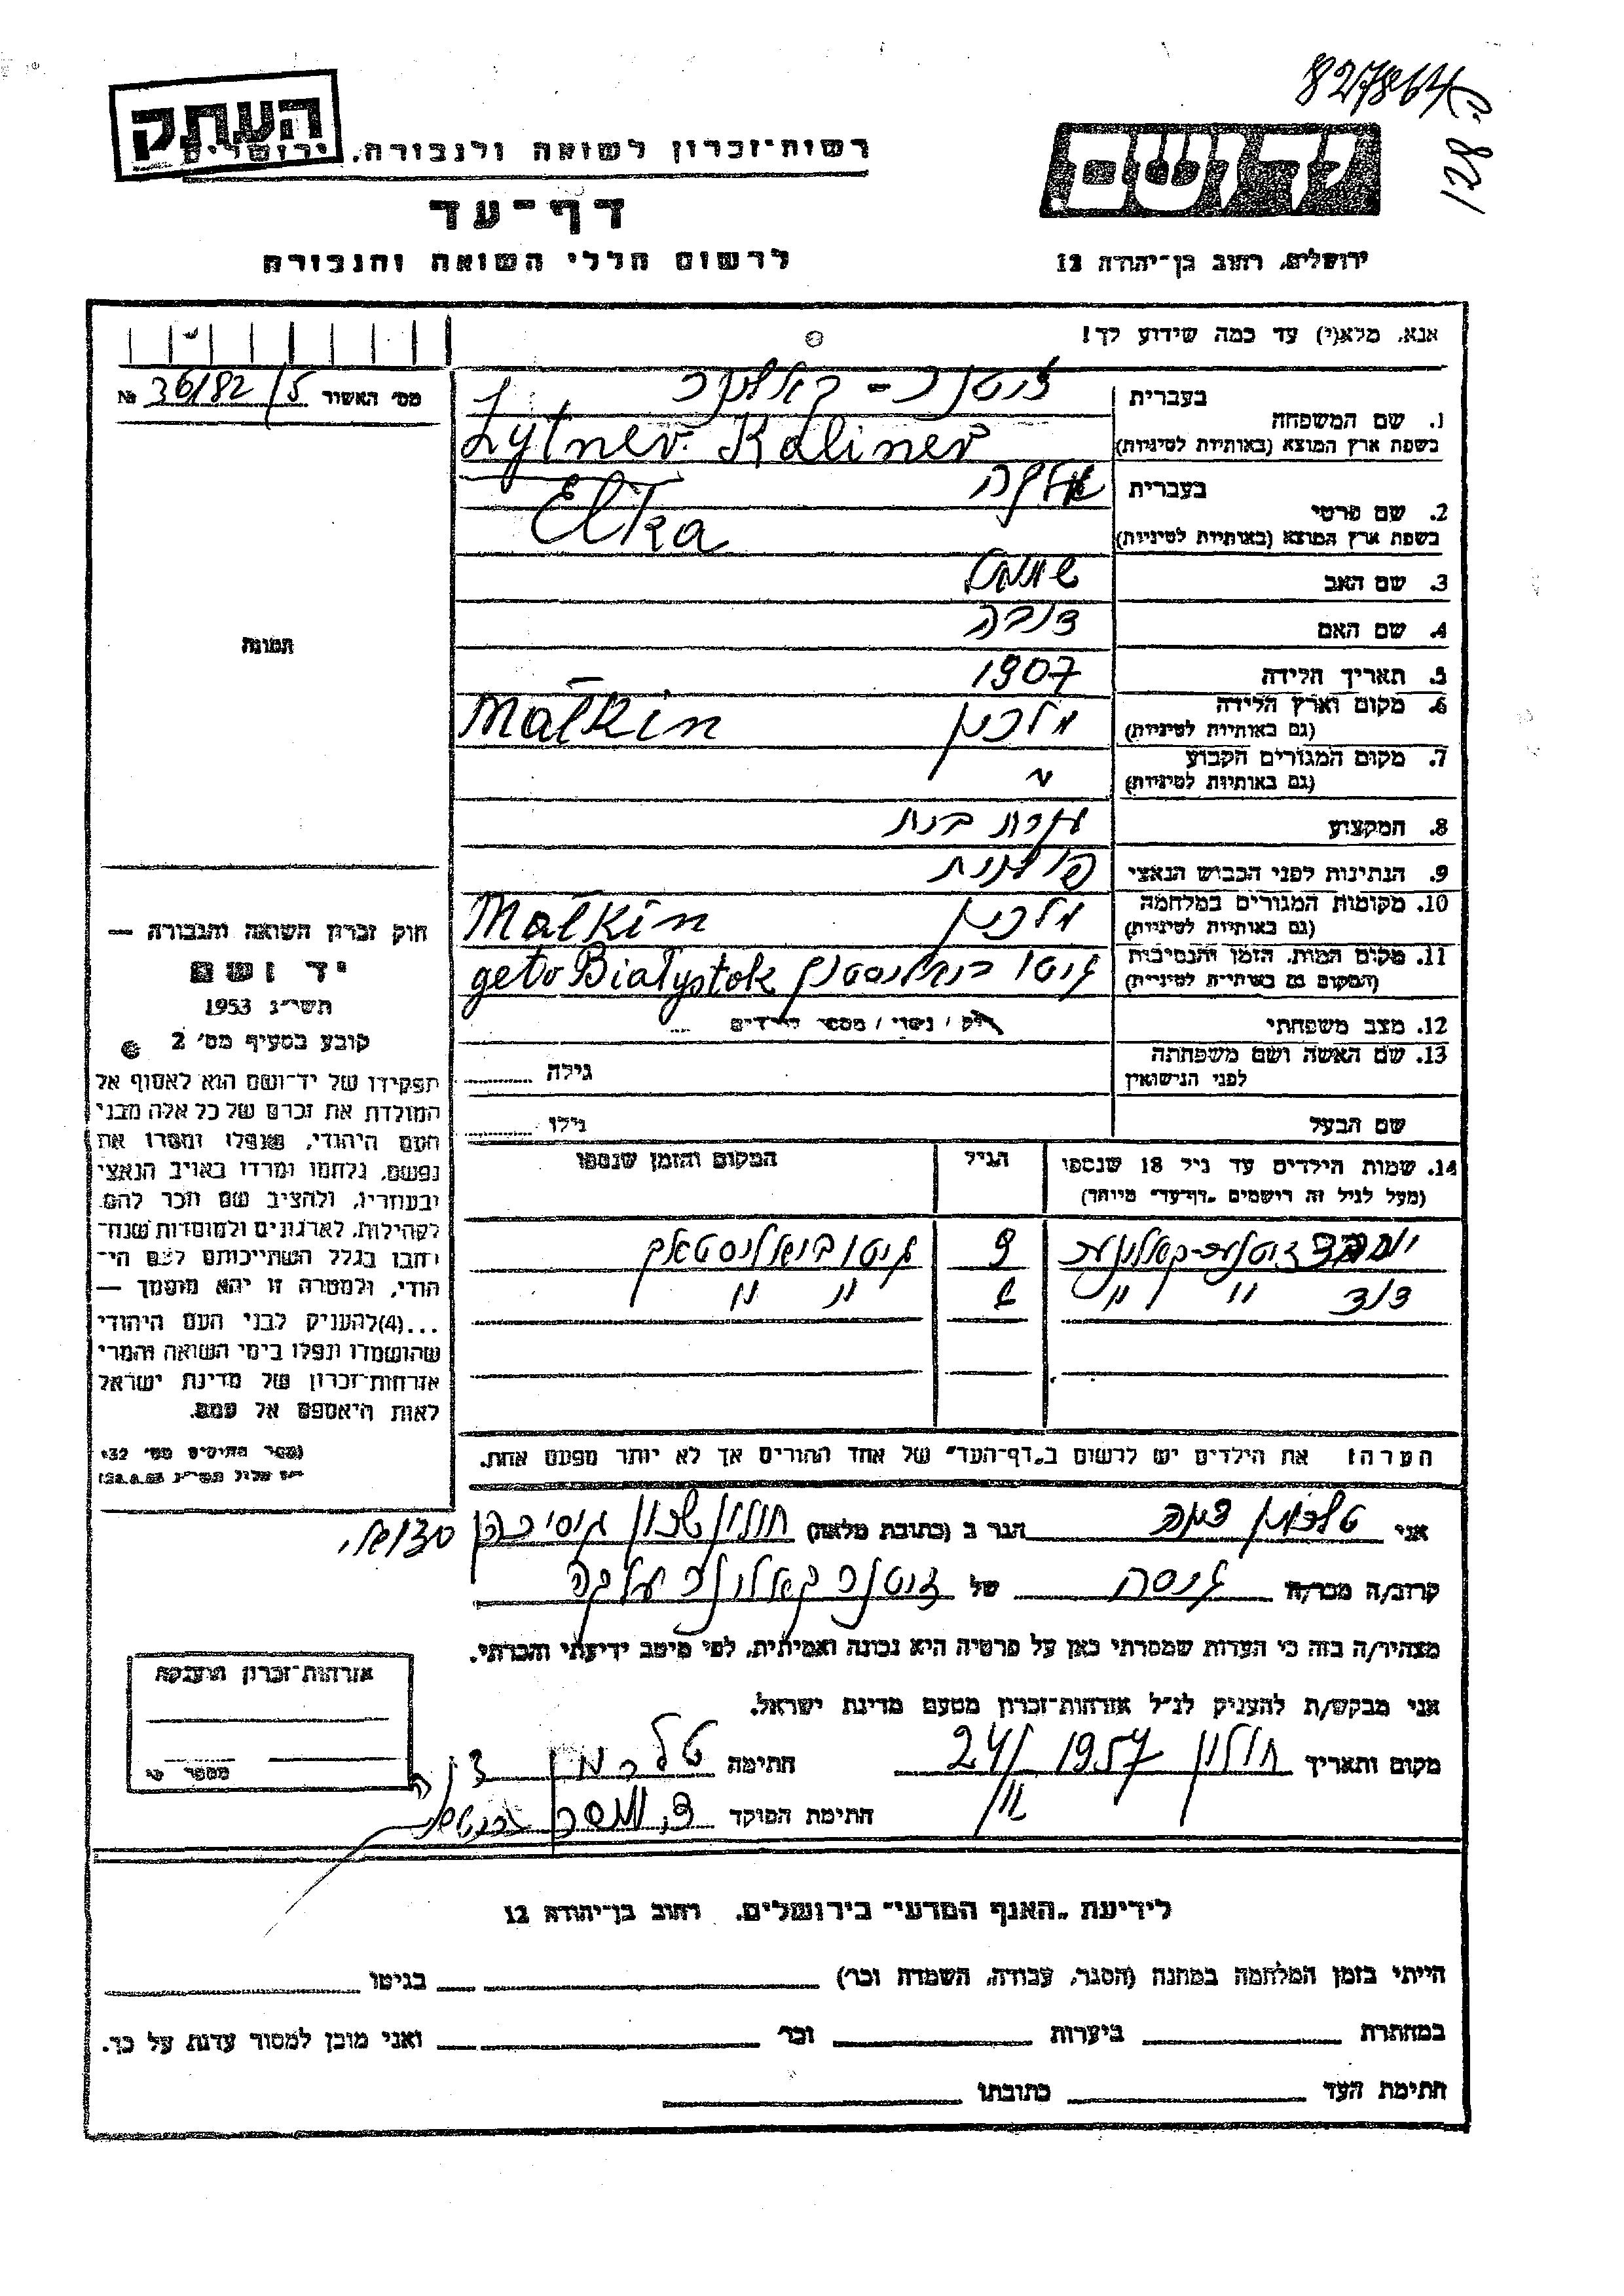 827864
128
העתק
רשות־זכרון לשואה ולגבורה, ירושלים
יד ושם
דף־עד
לרשום חללי השואה והגבורה
ירושלים, רחוב בן־יהודה 12
אנא, מלא(י) עד כמה שידוע לך!
מס' האשור 36/82/5 №
1. שם המשפחה
בעברית
בשפת ארץ המוצא (באותיות לטיניות) Zytner. Kaliner
2. שם פרטי
בעברית אלקה
בשפת ארץ המוצא (באותיות לטיניות) Elka
3. שם האב
4. שם האם
5. תאריך הלידה 1907
6. מקום וארץ הלידה
(גם באותיות לטיניות) מלכין Małkin
7. מקום המגורים הקבוע
(גם באותיות לטיניות) "
8. המקצוע עקרת בית
9. הנתינות לפני הכבוש הנאצי פולנית
10. מקומות המגורים במלחמה
(גם באותיות לטיניות) מלכין Małkin
11. מקום המות, הזמן והנסיבות
(המקום גם באותיות לטיניות) גיטו ביאליסטוק geto Białystok
12. מצב משפחתי רוק / נשוי / מספר הילדים
13. שם האשה ושם משפחתה
לפני הנישואין גילה
שם הבעל גילו
14. שמות הילדים עד גיל 18 שנספו
(מעל לגיל זה רושמים "דף־עד" מיוחד) הגיל המקום והזמן שנספו
9 גיטו ביאליסטאק
" " " "
הערה: את הילדים יש לרשום ב"דף־העד" של אחד ההורים אך לא יותר מפעם אחת.
תמונה
חוק זכרון השואה והגבורה —
יד ושם
תשי"ג 1953
קובע בסעיף מס' 2
תפקידו של יד־ושם הוא לאסוף אל
המולדת את זכרם של כל אלה מבני
העם היהודי, שנפלו ומסרו את
נפשם, נלחמו ומרדו באויב הנאצי
ובעוזריו, ולהציב שם וזכר להם,
לקהילות, לארגונים ולמוסדות שנח־
רבו בגלל השתייכותם לעם הי־
הודי, ולמטרה זו יהא מוסמך —
...(4) להעניק לבני העם היהודי
שהושמדו ונפלו בימי השואה והמרי
אזרחות־זכרון של מדינת ישראל
לאות היאספם אל עמם.
אני הגר ב (כתובת מלאה) חולון
קרוב/ה מכר/ה גיסה של
מצהיר/ה בזה כי העדות שמסרתי כאן על פרטיה היא נכונה ואמיתית, לפי מיטב ידיעתי והכרתי.
אני מבקש/ת להעניק לנ"ל אזרחות־זכרון מטעם מדינת ישראל.
מקום ותאריך חולון 1957 24/ חתימה
חתימת הפוקד
אזרחות־זכרון הוענקה
מספר
לידיעת "האגף המדעי" בירושלים, רחוב בן־יהודה 12
הייתי בזמן המלחמה במחנה (הסגר, עבודה, השמדה וכו') בגיטו
במחתרת ביערות וכו' ואני מוכן למסור עדות על כך.
חתימת העד כתובתו